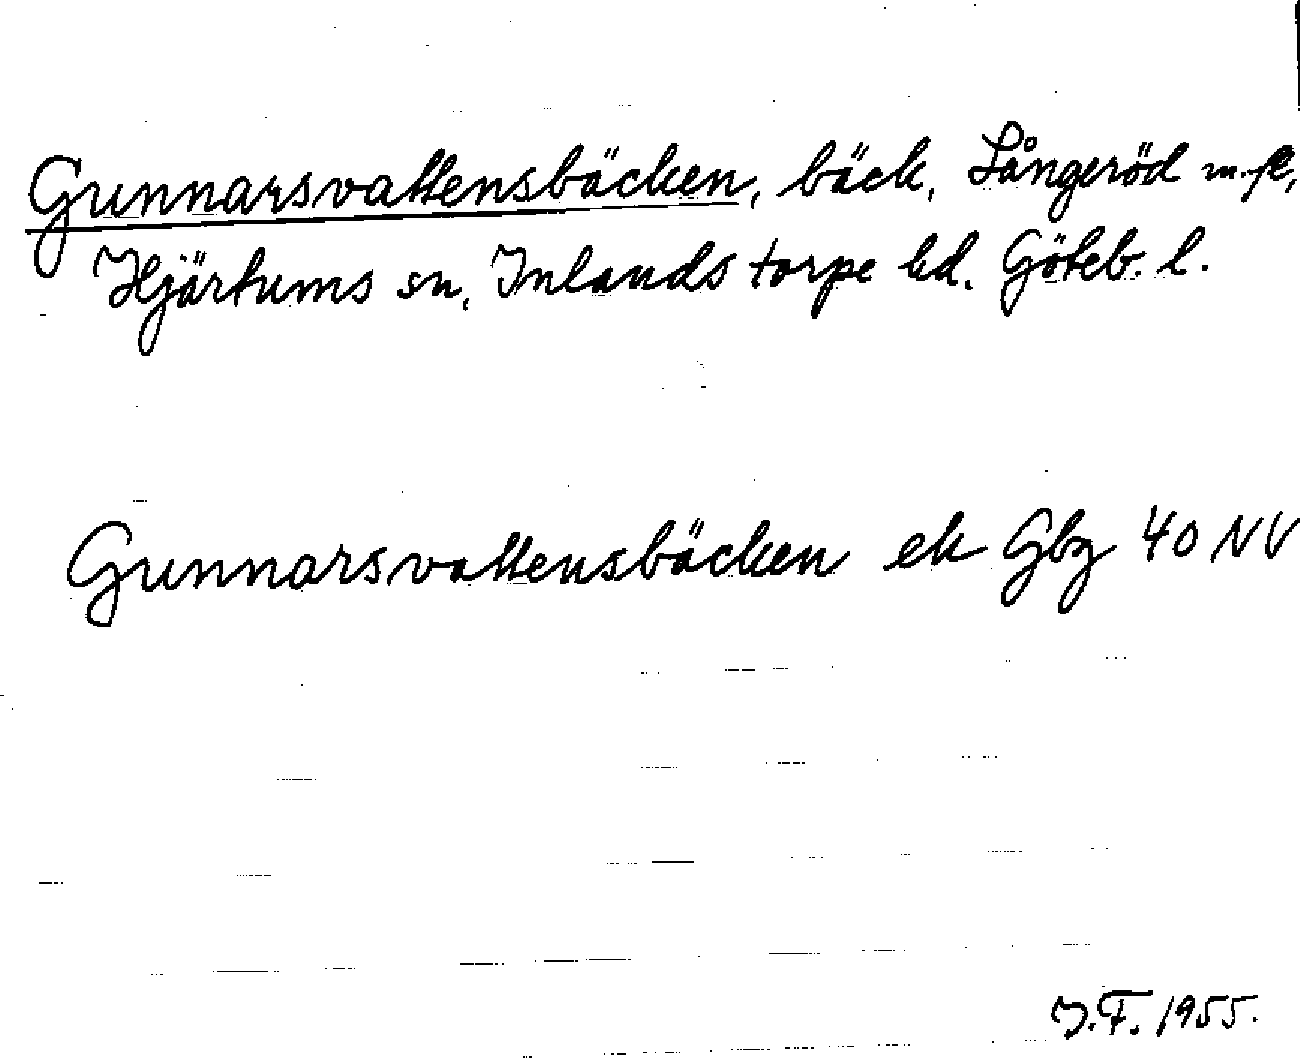 Gunnarsvattensbäcken, bäck, Långeröd m.fl.,
Hjärtums sn, Inlands torpe hd. Göteb. l.
Gunnarsvattensbäcken ek Gbg 40 NV
J.F. 1955.